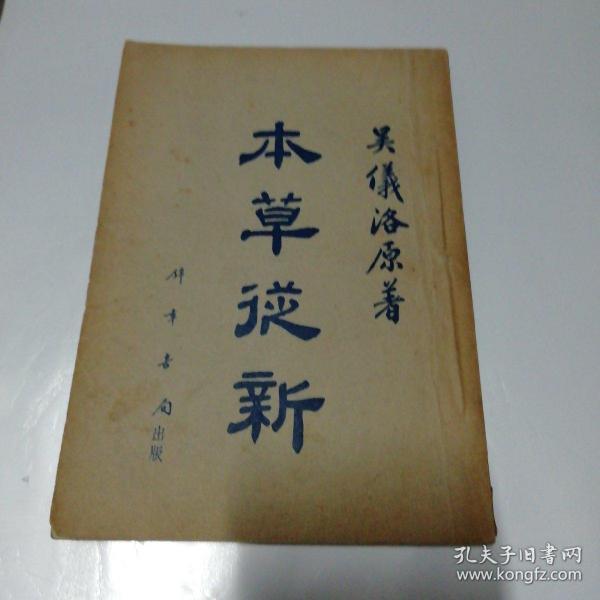 吴儀洛原著
本草從新
章書局出版
孔夫子旧書网
www.kongfz.com